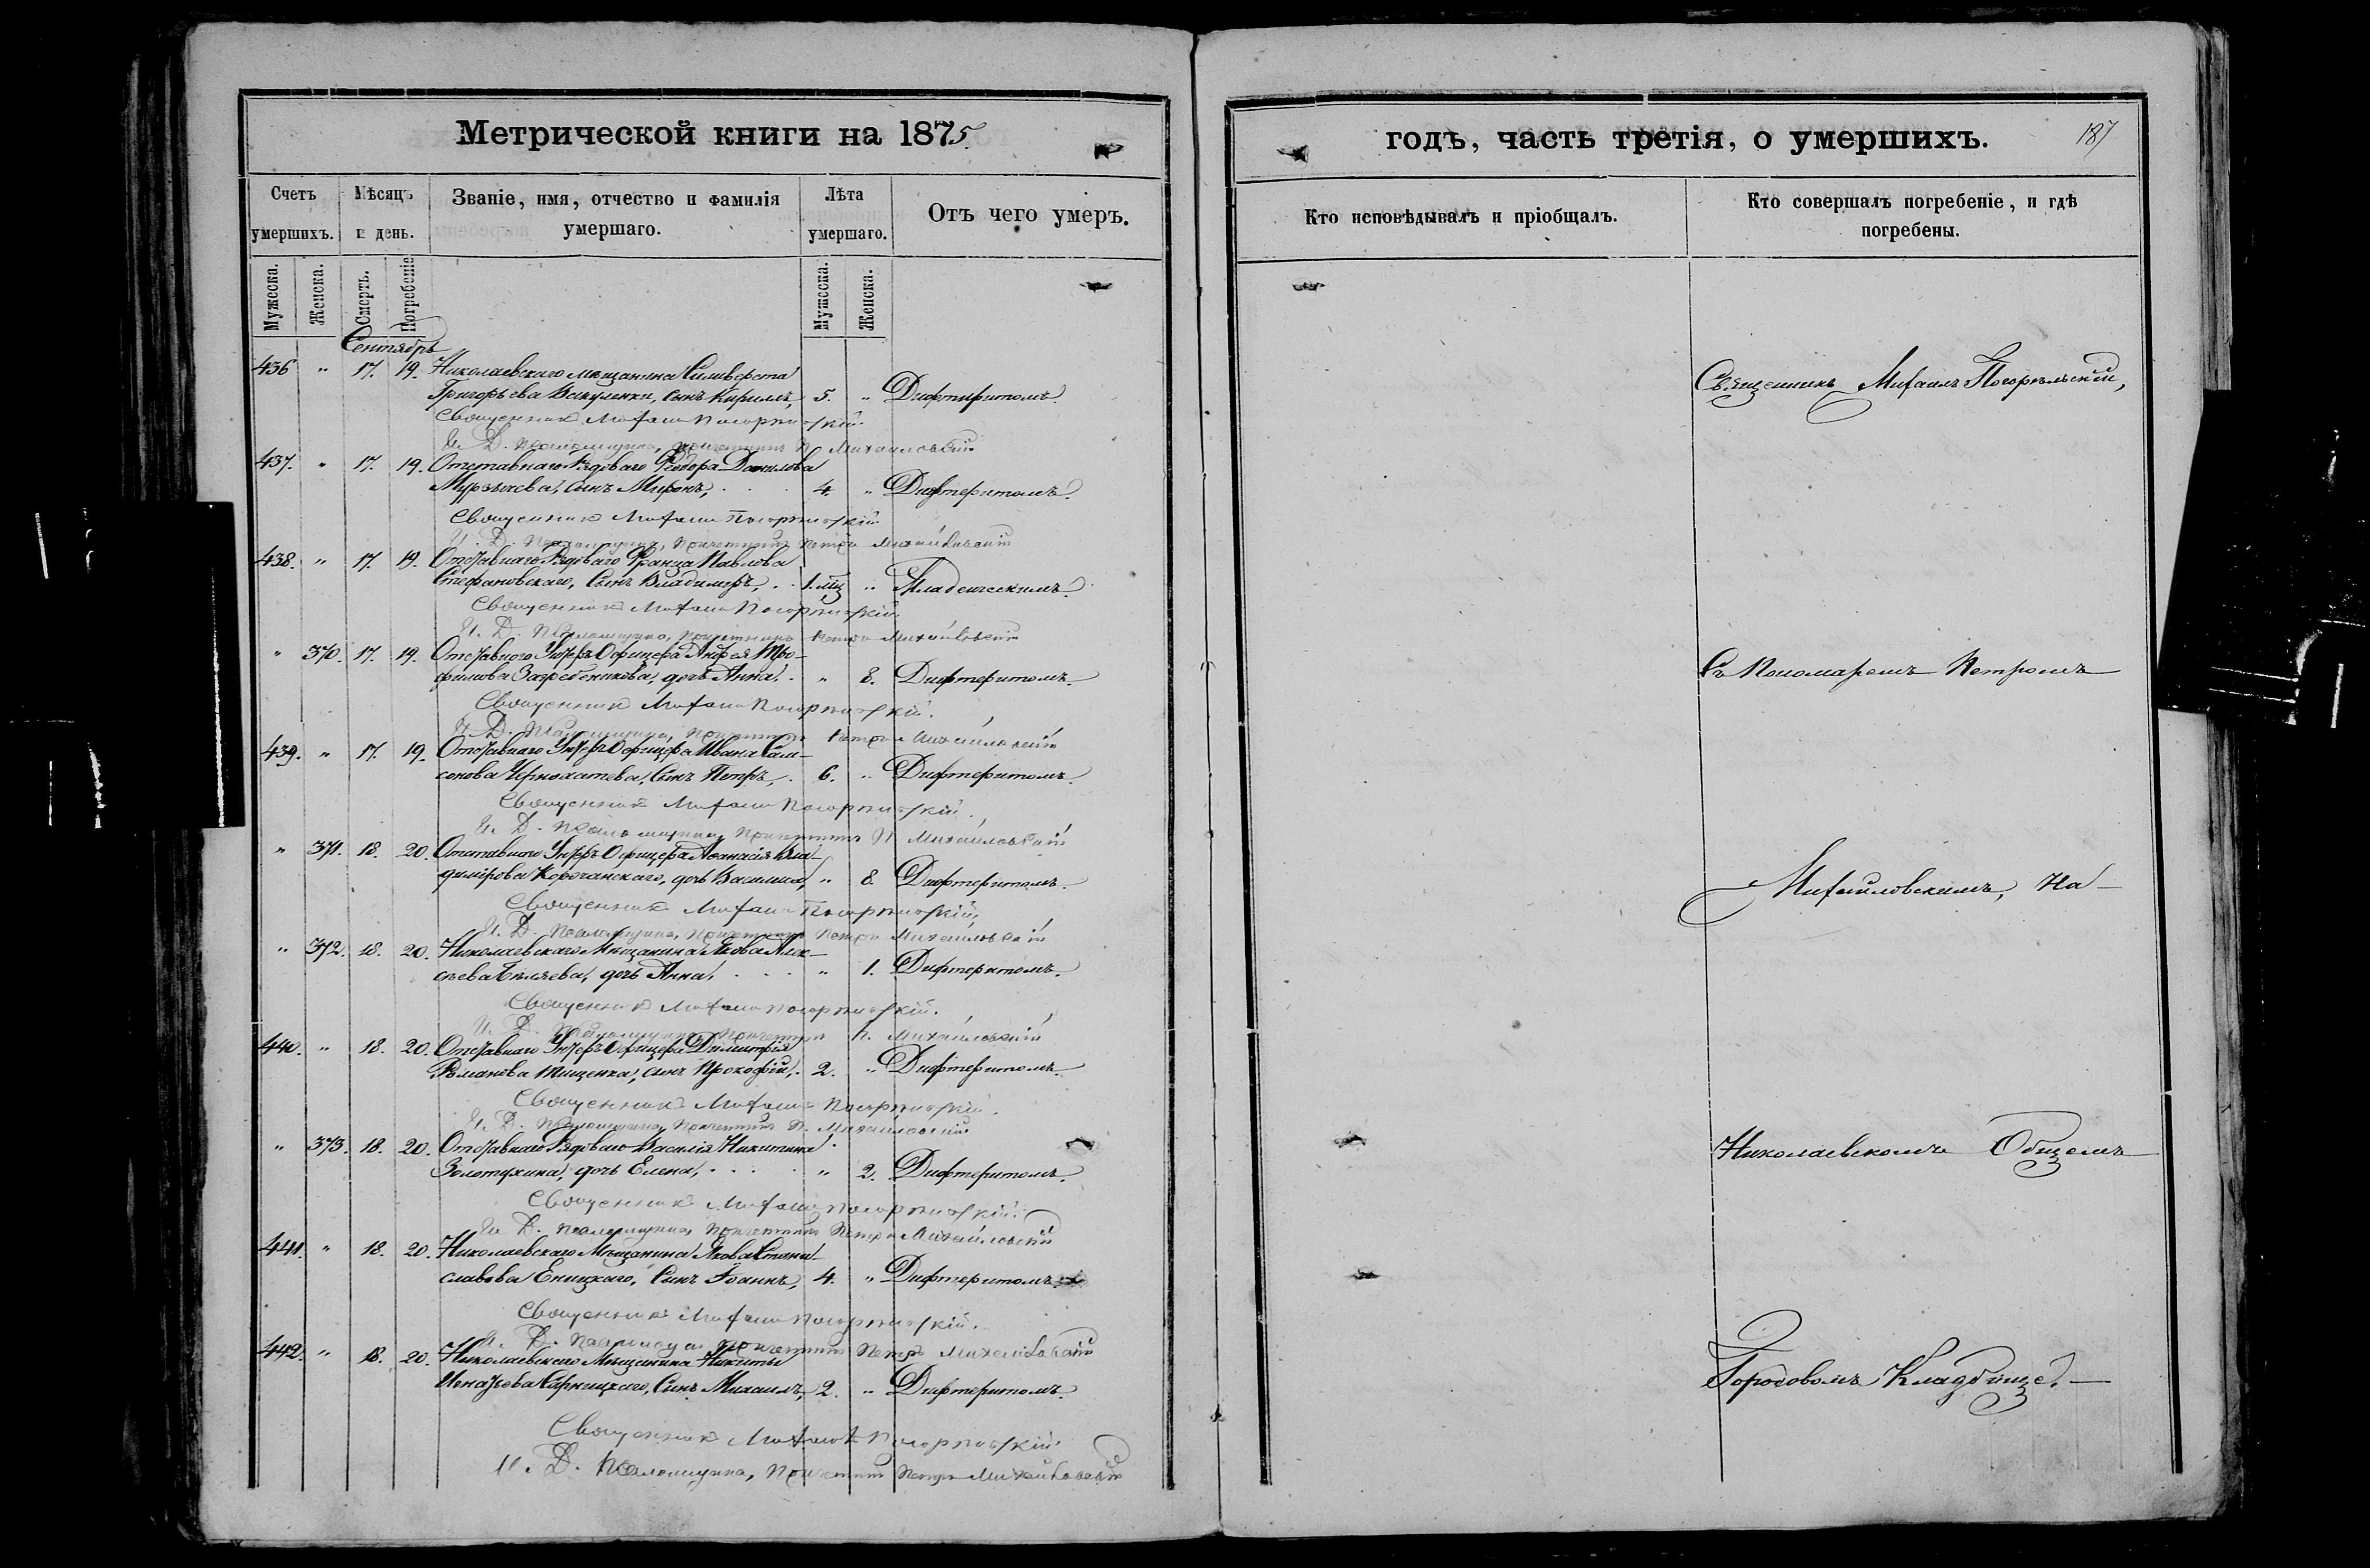 Метрической книги на 1875
Счетъ умершихъ.
Мѣсяцъ и день.
Званіе, имя, отчество и фамилія умершаго.
Лѣта умершаго.
Отъ чего умеръ.
Мужеска. Женска. Смерть. Погребеніе. Мужеска. Женска.
Сентябрь
436 " 17. 19. Николаевскаго мѣщанина Сильверста
Григорьева Вакуленки, сынъ Кириллъ, 5. " Дифтеритомъ.
Священникъ Михаилъ Погорѣльскій.
И. Д. Псаломщика, причетникъ П. Михайловскій
437. " 17. 19. Отставнаго Рядоваго Ѳедора Данилова
сынъ Миронъ, 4. " Дифтеритомъ.
Священникъ Михаилъ Погорѣльскій
И. Д. Псаломщика, причетникъ Петръ Михайловскій
438. " 17. 19. Отставнаго Рядоваго Франца Павлова
Стефановскаго, Сынъ Владимиръ, 1. мц " Младенческимъ.
Священникъ Михаилъ Погорѣльскій
И. Д. Псаломщика, причетникъ Петръ Михайловскій
" 370. 17. 19. Отставного Унтеръ Офицера Андрея Тро-
фимова Загребенникова, дочь Анна. " 8. Дифтеритомъ.
Священникъ Михаилъ Погорѣльскій.
И. Д. Псаломщика, причетникъ Петръ Михайловскій
439. " 17. 19. Отставнаго Унтеръ Офицера Ивана Сам-
сонова Чернохатова, Сынъ Петръ, 6. " Дифтеритомъ.
Священникъ Михаилъ Погорѣльскій.
И. Д. Псаломщика, причетникъ П. Михайловскій
" 371. 18. 20. Отставнаго Унтеръ Офицера Аѳанасія Вла-
димірова Корочанскаго, дочь " 8. Дифтеритомъ.
Священникъ Михаилъ Погорѣльскій.
И. Д. Псаломщика, причетникъ Петръ Михайловскій
" 372. 18. 20. Николаевскаго Мѣщанина Якова Алек-
сѣева Бѣляева, дочь Анна, " 1. Дифтеритомъ.
Священникъ Михаилъ Погорѣльскій.
И. Д. Псаломщика, причетникъ П. Михайловскій
440. " 18. 20. Отставнаго Унтеръ Офицера Димитрія
Романова Тищенка, сынъ Прокофій, 2. " Дифтеритомъ.
Священникъ Михаилъ Погорѣльскій.
И. Д. Псаломщика, причетникъ П. Михайловскій
" 373. 18. 20. Отставнаго Рядоваго Василія Никитина
Золотухина, дочь Елена, " 2. Дифтеритомъ.
Священникъ Михаилъ Погорѣльскій.
И. Д. Псаломщика, причетникъ Петръ Михайловскій
441. " 18. 20. Николаевскаго Мѣщанина Якова Стани-
славова Еницкаго, Сынъ Іоаннъ, 4. " Дифтеритомъ.
Священникъ Михаилъ Погорѣльскій.
И. Д. Псаломщика причетникъ Петръ Михайловскій
442. " 18. 20. Николаевскаго Мѣщанина Никиты
Игнатьева Сарницкаго, Сынъ Михаилъ, 2. " Дифтеритомъ.
Священникъ Михаилъ Погорѣльскій
И. Д. Псаломщика, причетникъ Петръ Михайловскій
годъ, часть третія, о умершихъ.
187
Кто исповѣдывалъ и пріобщалъ.
Кто совершалъ погребеніе, и гдѣ погребены.
Священникъ Михаилъ Погорѣльскій,
Съ Пономаремъ Петромъ
Михайловскимъ, На
Николаевскомъ Общемъ
Городовомъ Кладбище. —